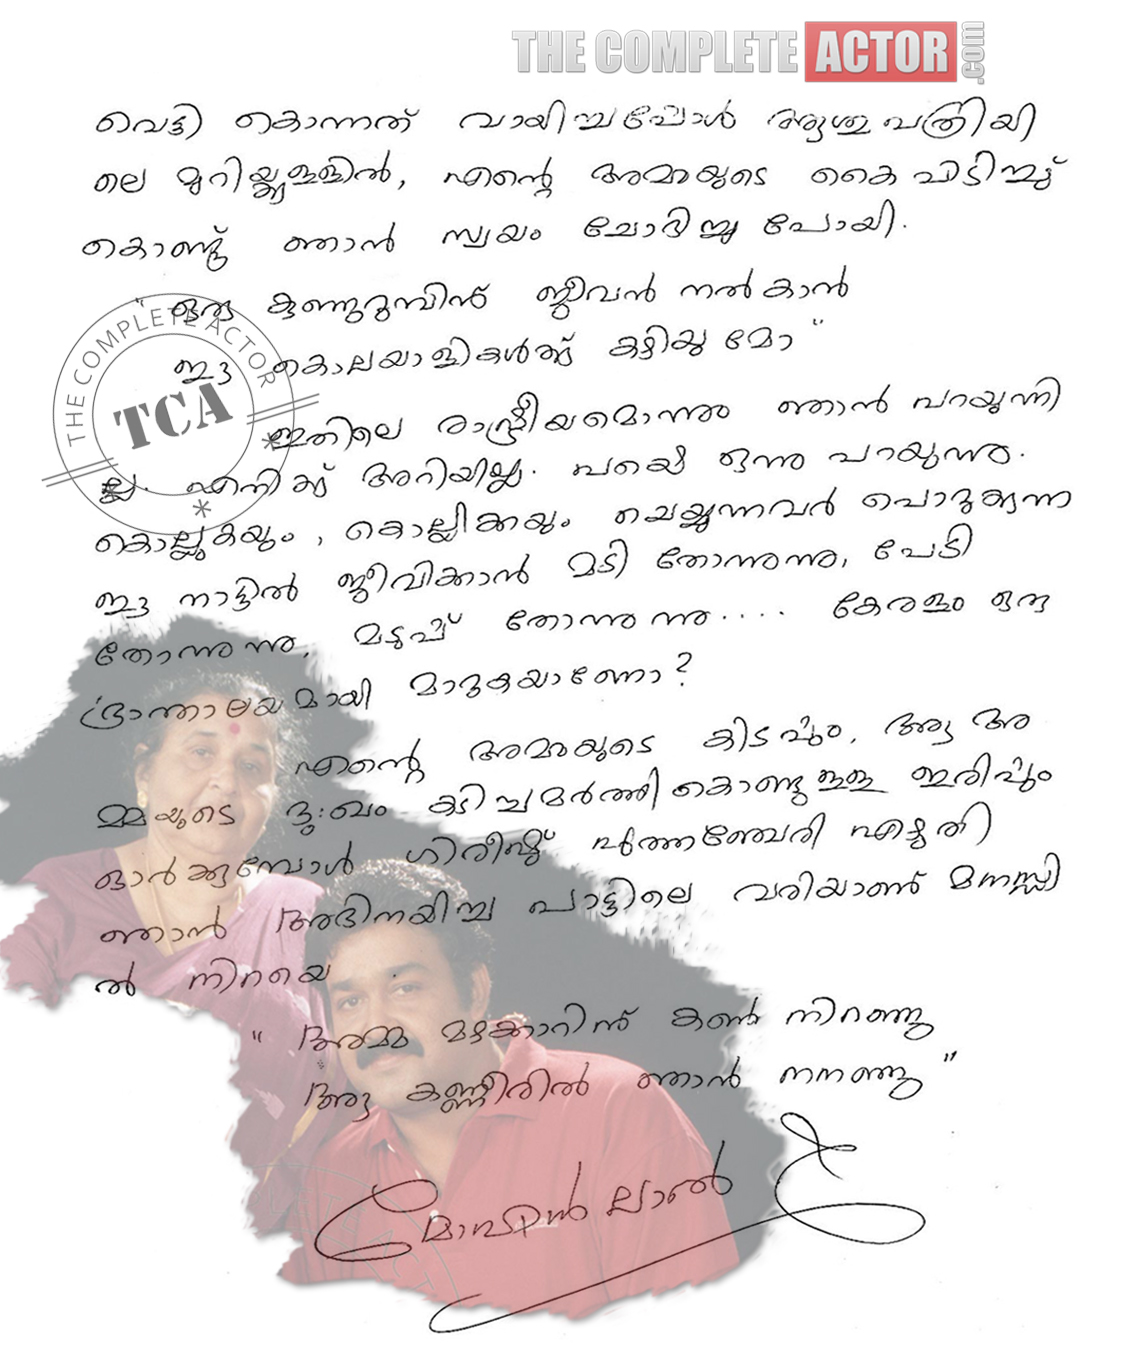 THE COMPLETE ACTOR .com
വെട്ടി കൊന്നത് വായിച്ചപ്പോൾ ആശുപത്രിയി
ലെ മുറിയ്ക്കുള്ളിൽ, എന്റെ അമ്മയുടെ കൈ പിടിച്ചു
കൊണ്ട് ഞാൻ സ്വയം ചോദിച്ചു പോയി.
"ഒരു കുഞ്ഞുറുമ്പിന് ജീവൻ നൽകാൻ
ഈ കൊലയാളികൾക്ക് കഴിയുമോ"
ഇതിലെ രാഷ്ട്രീയമൊന്നും ഞാൻ പറയുന്നി
ല്ല. എനിക്ക് അറിയില്ല. പക്ഷെ ഒന്നു പറയുന്നു.
കൊല്ലുകയും, കൊല്ലിക്കയും ചെയ്യുന്നവർ പൊറുക്കുന്ന
ഈ നാട്ടിൽ ജീവിക്കാൻ മടി തോന്നുന്നു, പേടി
തോന്നുന്നു, മടുപ്പ് തോന്നുന്നു.... കേരളം ഒരു
ഭ്രാന്താലയമായി മാറുകയാണോ?
എന്റെ അമ്മയുടെ കിടപ്പും, ആ അ
മ്മയുടെ ദുഃഖം കടിച്ചമർത്തി കൊണ്ടുള്ള ഇരിപ്പും
ഓർക്കുമ്പോൾ ഗിരീഷ് പുത്തഞ്ചേരി എഴുതി
ഞാൻ അഭിനയിച്ച പാട്ടിലെ വരിയാണ് മനസ്സി
ൽ നിറയെ
"അമ്മ മഴക്കാറിന് കൺ നിറഞ്ഞു
ആ കണ്ണീരിൽ ഞാൻ നനഞ്ഞു"
മോഹൻലാൽ
THE COMPLETE ACTOR
TCA